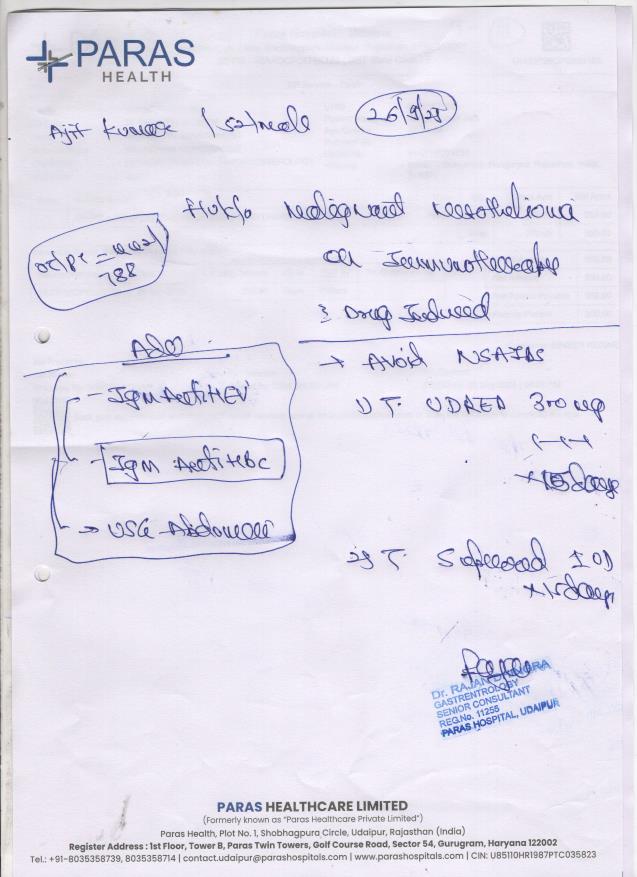 PARAS
HEALTH
Ajit Kumar / 52/male
26/9/25
H/o/k/o Malignant Mesothelioma
on Immunotherapy
? Drug Induced
OT/PT =
788
Adv
- IgM Anti HEV
- IgM Anti HBc
→ USG Abdomen
→ Avoid NSAIDs
1) T. UDREA 300 mg
1-1-1
x 15 days
2) T. 1 OD
x 15 days
Dr. RAJAN
GASTRENTROLOGY
SENIOR CONSULTANT
REG.No. 11255
PARAS HOSPITAL, UDAIPUR
PARAS HEALTHCARE LIMITED
(Formerly known as "Paras Healthcare Private Limited")
Paras Health, Plot No. 1, Shobhagpura Circle, Udaipur, Rajasthan (India)
Register Address : 1st Floor, Tower B, Paras Twin Towers, Golf Course Road, Sector 54, Gurugram, Haryana 122002
Tel.: +91-8035358739, 8035358714 | contact.udaipur@parashospitals.com | www.parashospitals.com | CIN: U85110HR1987PTC035823